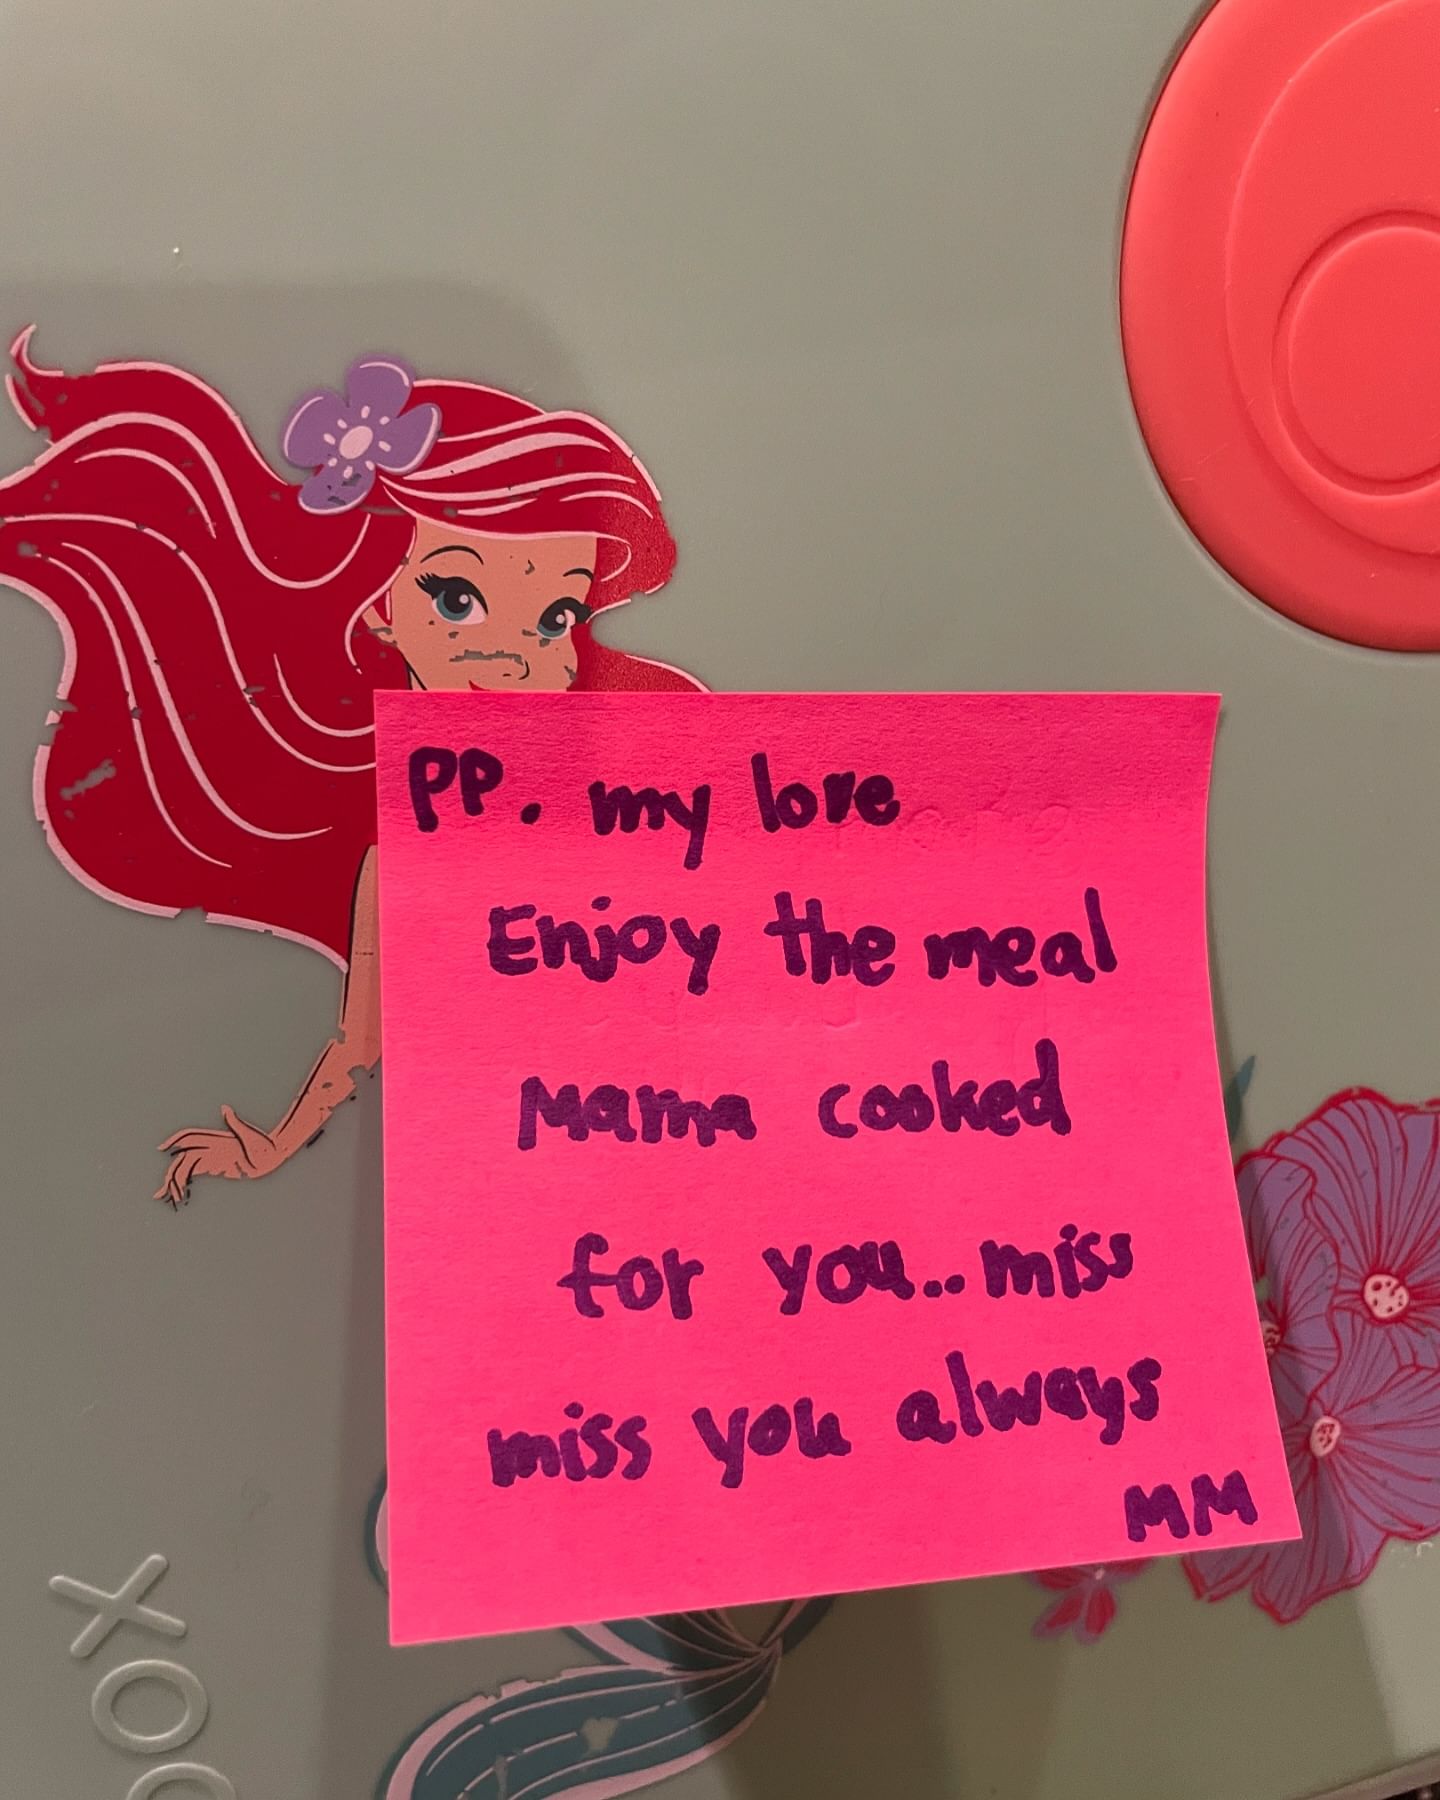 PP. my love
Enjoy the meal
Mama cooked
for you.. miss
miss you always
MM
XO